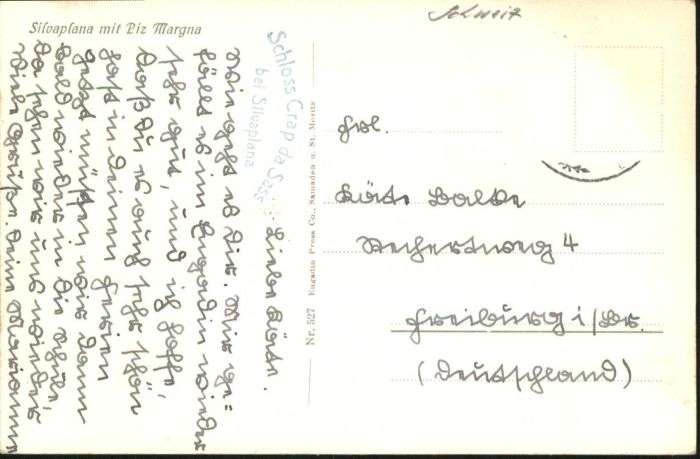 Schweiz
Silvaplana mit Piz Margna
Schloss Crap da Sass
bei Silvaplana
Liebe Käte.
Wie geht es Dir. Mir ge=
fällt es im Engadin wieder
sehr gut, und ich hoffe,
daß Du es auch sehr schön
hast in Deinen Ferien
Jetzt müssen wir dann
bald wieder in die Schule,
da sehen wir uns wieder.
Viele Grüße. Deine Marianne
Nr. 527 Engadin Press Co., Samaden u. St. Moritz
Frl.
Käte
4
Freiburg i/Br.
(Deutschland)